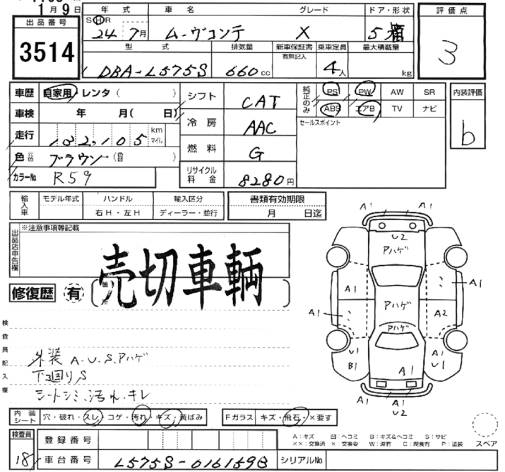 1月9日
出品番号 3514
年式 S H R 24年7月
車名 ムーヴコンテ
グレード X
ドア・形状 5
評価点 3
型式 DBA-L575S
排気量 660cc
新車保証書 有無記入
乗車定員 4人
最大積載量 kg
車歴 自家用・レンタ( )
車検 年 月( 日)
走行 132,105 km マイル
色 ブラウン
カラーNo R59
シフト CAT
冷房 AAC
燃料 G
リサイクル料金 8280円
純正のみ PS PW AW SR
ABS エアB TV ナビ
セールスポイント
内装評価 b
輸入車 モデル年式 ハンドル 右H・左H 輸入区分 ディーラー・並行
書類有効期限 月 日迄
出品店申告欄 ※注意事項等記載
売切車輌
修復歴 有
検査員記入欄
外装 A.U.S.アハゲ
下廻りS
シートシミ.汚れ.キレ
A1 A1 U2 アハゲ
A1 A1 アハゲ A2 A1
アハゲ
U1 B1 A1 U1
A1
内装シート 穴・破れ・スレ コゲ・汚れ・キズ・黄ばみ
Fガラス キズ・飛石・×要す
A:キズ U:ヘコミ B:キズ&ヘコミ S:サビ
スペア
検査員 18
登録番号
車台番号 L575S-0161598
シリアルNo